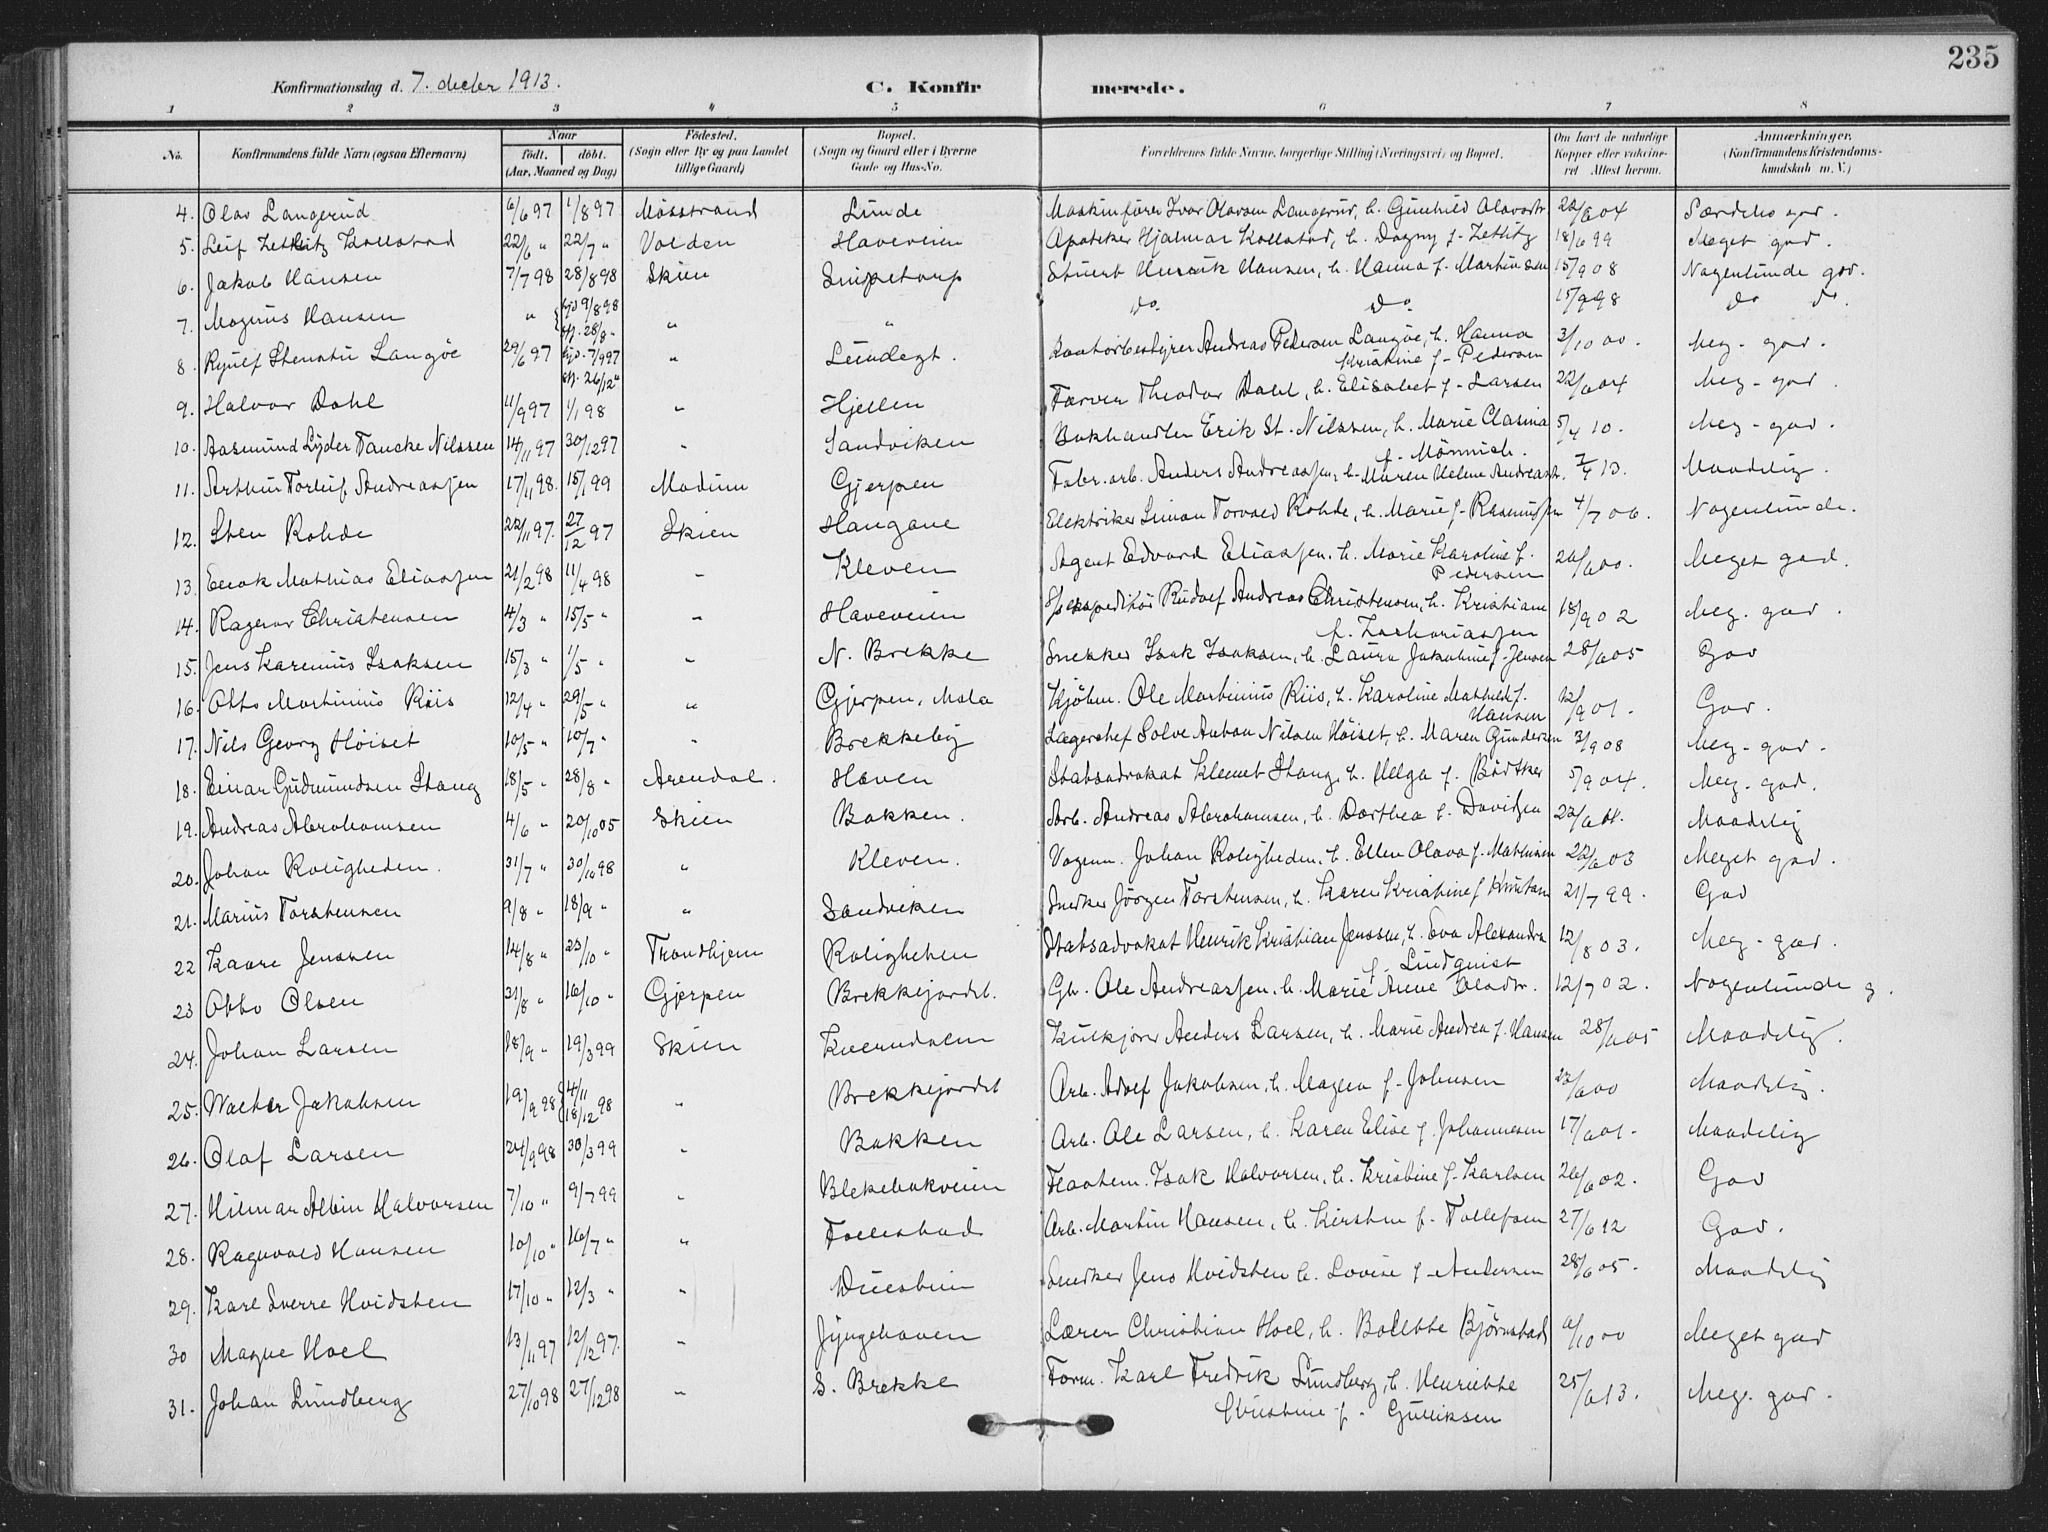 235
Konfirmationsdag d. 7. decbr 1913. C. Konfirmerede.
1 2 3 4 5 6 7 8
No. Konfirmandens fulde Navn (ogsaa Efternavn) Naar födt. döbt. (Aar, Maaned og Dag) Födested. (Sogn eller By og paa Landet tillige Gaard) Bopæl. (Sogn og Gaard eller i Byerne Gade og Hus-No. Forældrenes fulde Navne, borgerlige Stilling (Næringsvei) og Bopæl. Om havt de naturlige Kopper eller vaccineret Attest herom. Anmærkninger. (Konfirmandens Kristendomskundskab m. V.)
4. Olav Langerud 6/6 97 1/8 97 Mösstrand Lunde Maskinfører Ivar Olavsen Langerud, h. Gunhild Olavsdtr. 22/6 04 Særdeles god.
5. Leif Zetlitz Kollstad 22/6 " 22/7 " Volden Haveveien Apoteker Hjalmar Kollstad, h. Dagny f. Zetlitz 18/6 99 Meget god.
6. Jakob Hansen 7/7 98 28/8 98 Skien Snipetorp Stuert Henrik Hansen, h. Hanna f. Martinsen 15/9 08 Nogenlunde god.
7. Magnus Hansen " hjd 9/8 98 stf. 28/8 " " " Do Do 15/9 98 Do Do.
8. Ryulf Stenstu Langöe 29/6 97 hjd. 7/9 97 stf. 26/12 " " Lundegt. Kontorbestyrer Andreas Pedersen Langöe, h. Hanna Kristine f. Pedersen 3/10 00. Meg. god.
9. Halvor Dahl 11/9 97 1/1 98 " Hjellen Farver Theodor Dahl, h. Elisabet f. Larsen 22/6 04 Meg. god.
10. Aasmund Lyder Tancke Nilssen 14/11 97 30/12 97 " Sandviken Bokhandler Erik St. Nilssen, h. Marie Clasina f. Mönnich. 5/4 10. Meg. god.
11. Arthur Torleif Andreassen 17/11 98. 15/1 99 Modum Gjerpen Fabr.arb. Anders Andreassen, h. Maren Helene Andreasdt. 7/4 13. Maadelig.
12. Sten Rohde 22/11 97. 27/12 97 Skien Haugane Elektriker Simon Torvald Rohde, h. Marie f. Rasmussen 4/7 06. Nogenlunde.
13. Mathias Eliassen 21/2 98 11/4 98 " Kleven Agent Edvard Eliassen, h. Marie Karoline f. Pedersen 26/6 00. Meget god.
14. Ragnar Christensen 4/3 " 15/5 " " Haveveien Expeditör Rudolf Andreas Christensen, h. Kristiane f. Zachariassen 18/9 02 Meg. god.
15. Jens Karenius Isaksen 15/3 " 1/5 " " N. Brekke Snekker Isak Isaksen, h. Laura Jakobine f. Jensen 28/6 05 God
16. Otto Martinius Riis 12/4 " 29/5 " " Gjerpen, Mæla Kjöbm. Ole Martinius Riis, h. Karoline Mathilde f. Hansen 12/9 01. God.
17. Nils Georg Höiset 10/5 " 10/7 " " Brekkeby Lagerchef Solve Anton Nilsen Höiset, h. Maren Gundersen 3/9 08 Meg. god.
18. Einar Gudmundsen Stang 18/5 " 28/8 " Arendal. Haven Statsadvokat Klemet Stang, h. Helga f. Bödtker 5/9 04. Meg. god.
19. Andreas Abrahamsen 4/6 " 20/10 05 Skien Bakken. Arb. Andreas Abrahamsen, h. Dorthea f. Davidsen 22/6 04. Maadelig
20. Johan Roligheden. 31/7 " 30/10 98 " Kleven. Vognm. Johan Roligheden, h. Ellen Olava f. Mathisen 22/6 03 Meget god.
21. Marius Torstensen 9/8 " 18/9 " " Sandviken Snekker Jörgen Torstensen, h. Karen Kristine f. Knutsen 21/7 99. God
22 Kaare Jenssen 14/8 " 23/10 " Trondhjem Roligheten Statsadvokat Henrik Kristian Jenssen, h. Eva Alexandra f. Lindquist 12/8 03. Meg. god.
23 Otto Olsen 31/8 " 16/10 " Gjerpen Brekkejordet. Gb. Ole Andreassen, h. Marie Anne Olsdtr. 12/7 02. Nogenlunde g.
24. Johan Larsen 18/9 " 19/3 99 Skien Kverndalen Kulkjörer Anders Larsen, h. Marie Andrea f. Hansen 28/6 05 Maadelig.
25. Walter Jakobsen 19/9 98 4/11 18/12 98 " Brekkejordet Arb. Adolf Jakobsen, h. Magna f. Johnsen 22/6 00 Maadelig.
26. Olaf Larsen 24/9 98 30/3 99 " Bakken Arb. Ole Larsen, h. Karen Elise f. Johannesen 17/6 01. Maadelig
27. Hilmar Albin Halvorsen 7/10 " 9/7 99 " Blekebakveien Flaatem. Isak Halvorsen, h. Kristine f. Karlsen 26/6 02. God
28. Ragnvald Hansen 10/10 " 16/7 " " Follestad Arb. Martin Hansen, h. Kirsten f. Tollefsen 27/6 12 God.
29. Karl Sverre Hvidsten 17/10 " 12/3 " " Duestien Snekker Jens Hvidsten h. Lovise f. Andersen 28/6 05. Maadelig
30 Magne Hoel 13/11 97 12/12 97. " Jyngehaven Lærer Christian Hoel, h. Bolette Björnstad 6/10 00 Meget god
31. Johan Lundberg 27/10 98 27/12 98 " S. Brekke Form. Karl Fredrik Lundberg, h. Henriette Christine f. Gulliksen 25/6 13. Meg. god.